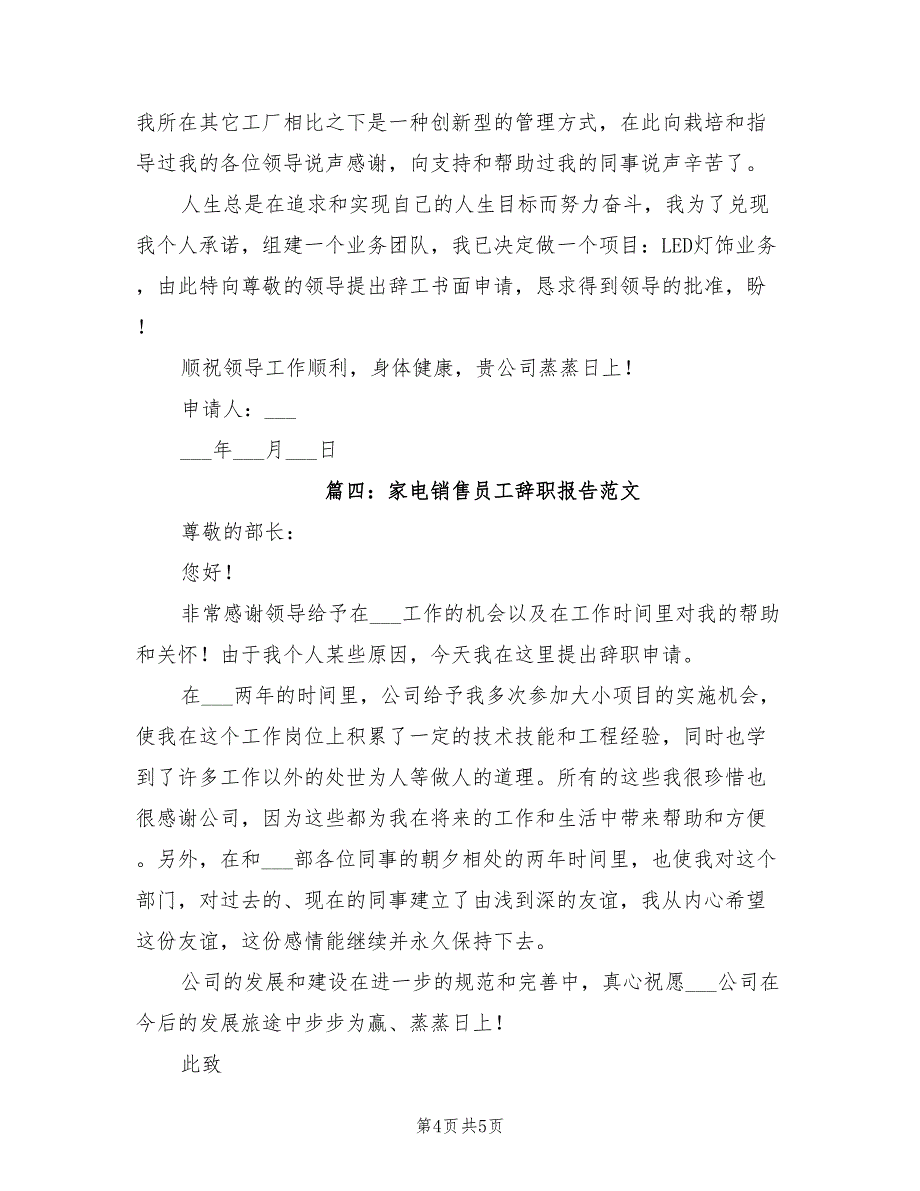 我所在其它工厂相比之下是一种创新型的管理方式，在此向栽培和指
导过我的各位领导说声感谢，向支持和帮助过我的同事说声辛苦了。
人生总是在追求和实现自己的人生目标而努力奋斗，我为了兑现
我个人承诺，组建一个业务团队，我已决定做一个项目：LED灯饰业务
，由此特向尊敬的领导提出辞工书面申请，恳求得到领导的批准，盼
！
顺祝领导工作顺利，身体健康，贵公司蒸蒸日上！
申请人：___
___年___月___日
篇四：家电销售员工辞职报告范文
尊敬的部长：
您好！
非常感谢领导给予在___工作的机会以及在工作时间里对我的帮助
和关怀！由于我个人某些原因，今天我在这里提出辞职申请。
在___两年的时间里，公司给予我多次参加大小项目的实施机会，
使我在这个工作岗位上积累了一定的技术技能和工程经验，同时也学
到了许多工作以外的处世为人等做人的道理。所有的这些我很珍惜也
很感谢公司，因为这些都为我在将来的工作和生活中带来帮助和方便
。另外，在和___部各位同事的朝夕相处的两年时间里，也使我对这个
部门，对过去的、现在的同事建立了由浅到深的友谊，我从内心希望
这份友谊，这份感情能继续并永久保持下去。
公司的发展和建设在进一步的规范和完善中，真心祝愿___公司在
今后的发展旅途中步步为赢、蒸蒸日上！
此致
第4页共5页